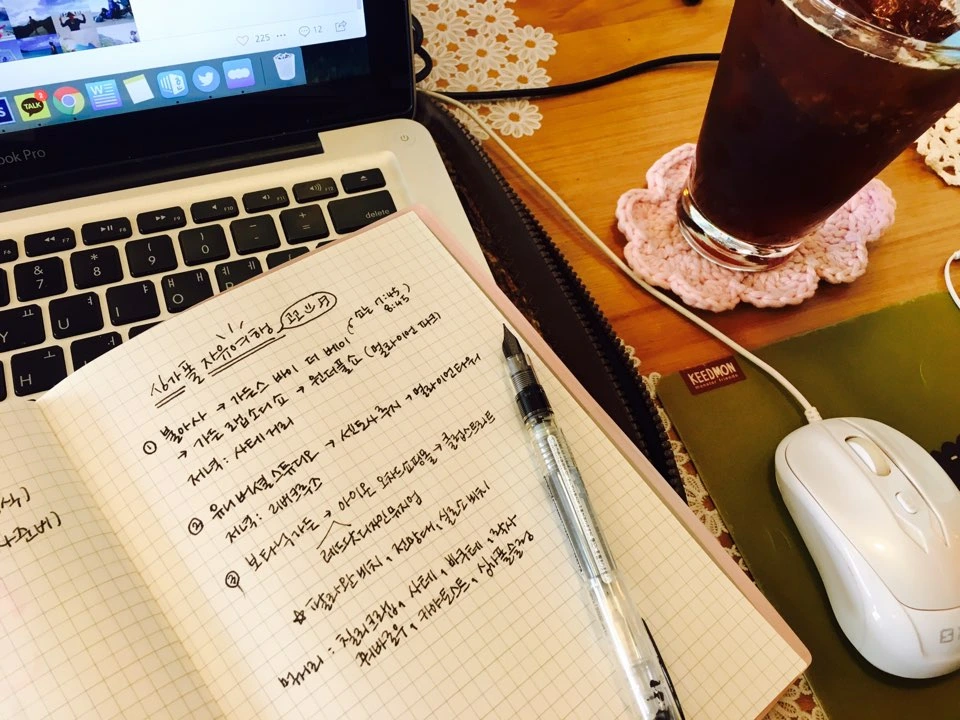 225 ··· 12
TALK
W
Book Pro
F7 F8 F9 F10 F11 F12
& 7 * 8 ( 9 ) 0 - + = delete
ㅛ ㅕ ㅑ ㅐ ㅔ
U I O P
H
싱가폴 자유여행 코스
① 불아사 → 가든스 바이 더 베이 (쇼는 7:45
8:45)
→ 가든 랩소디 쇼 → 원더풀쇼 (멀라이언 파크)
저녁 : 사테거리
② 유니버셜스튜디오 → 센토사 루지 → 멀라이언타워
저녁 : 리버크루즈
③ 보타닉가든 → 아이온 오차드쇼핑몰 → 클럽스트리트
레드닷디자인뮤지엄
☆ 팔라완비치, 전망대, 실로소비치
먹거리 : 칠리크랩, 사테, 바쿠테, 락사
카야토스트, 싱가폴슬링
KEEDMON
monster friends